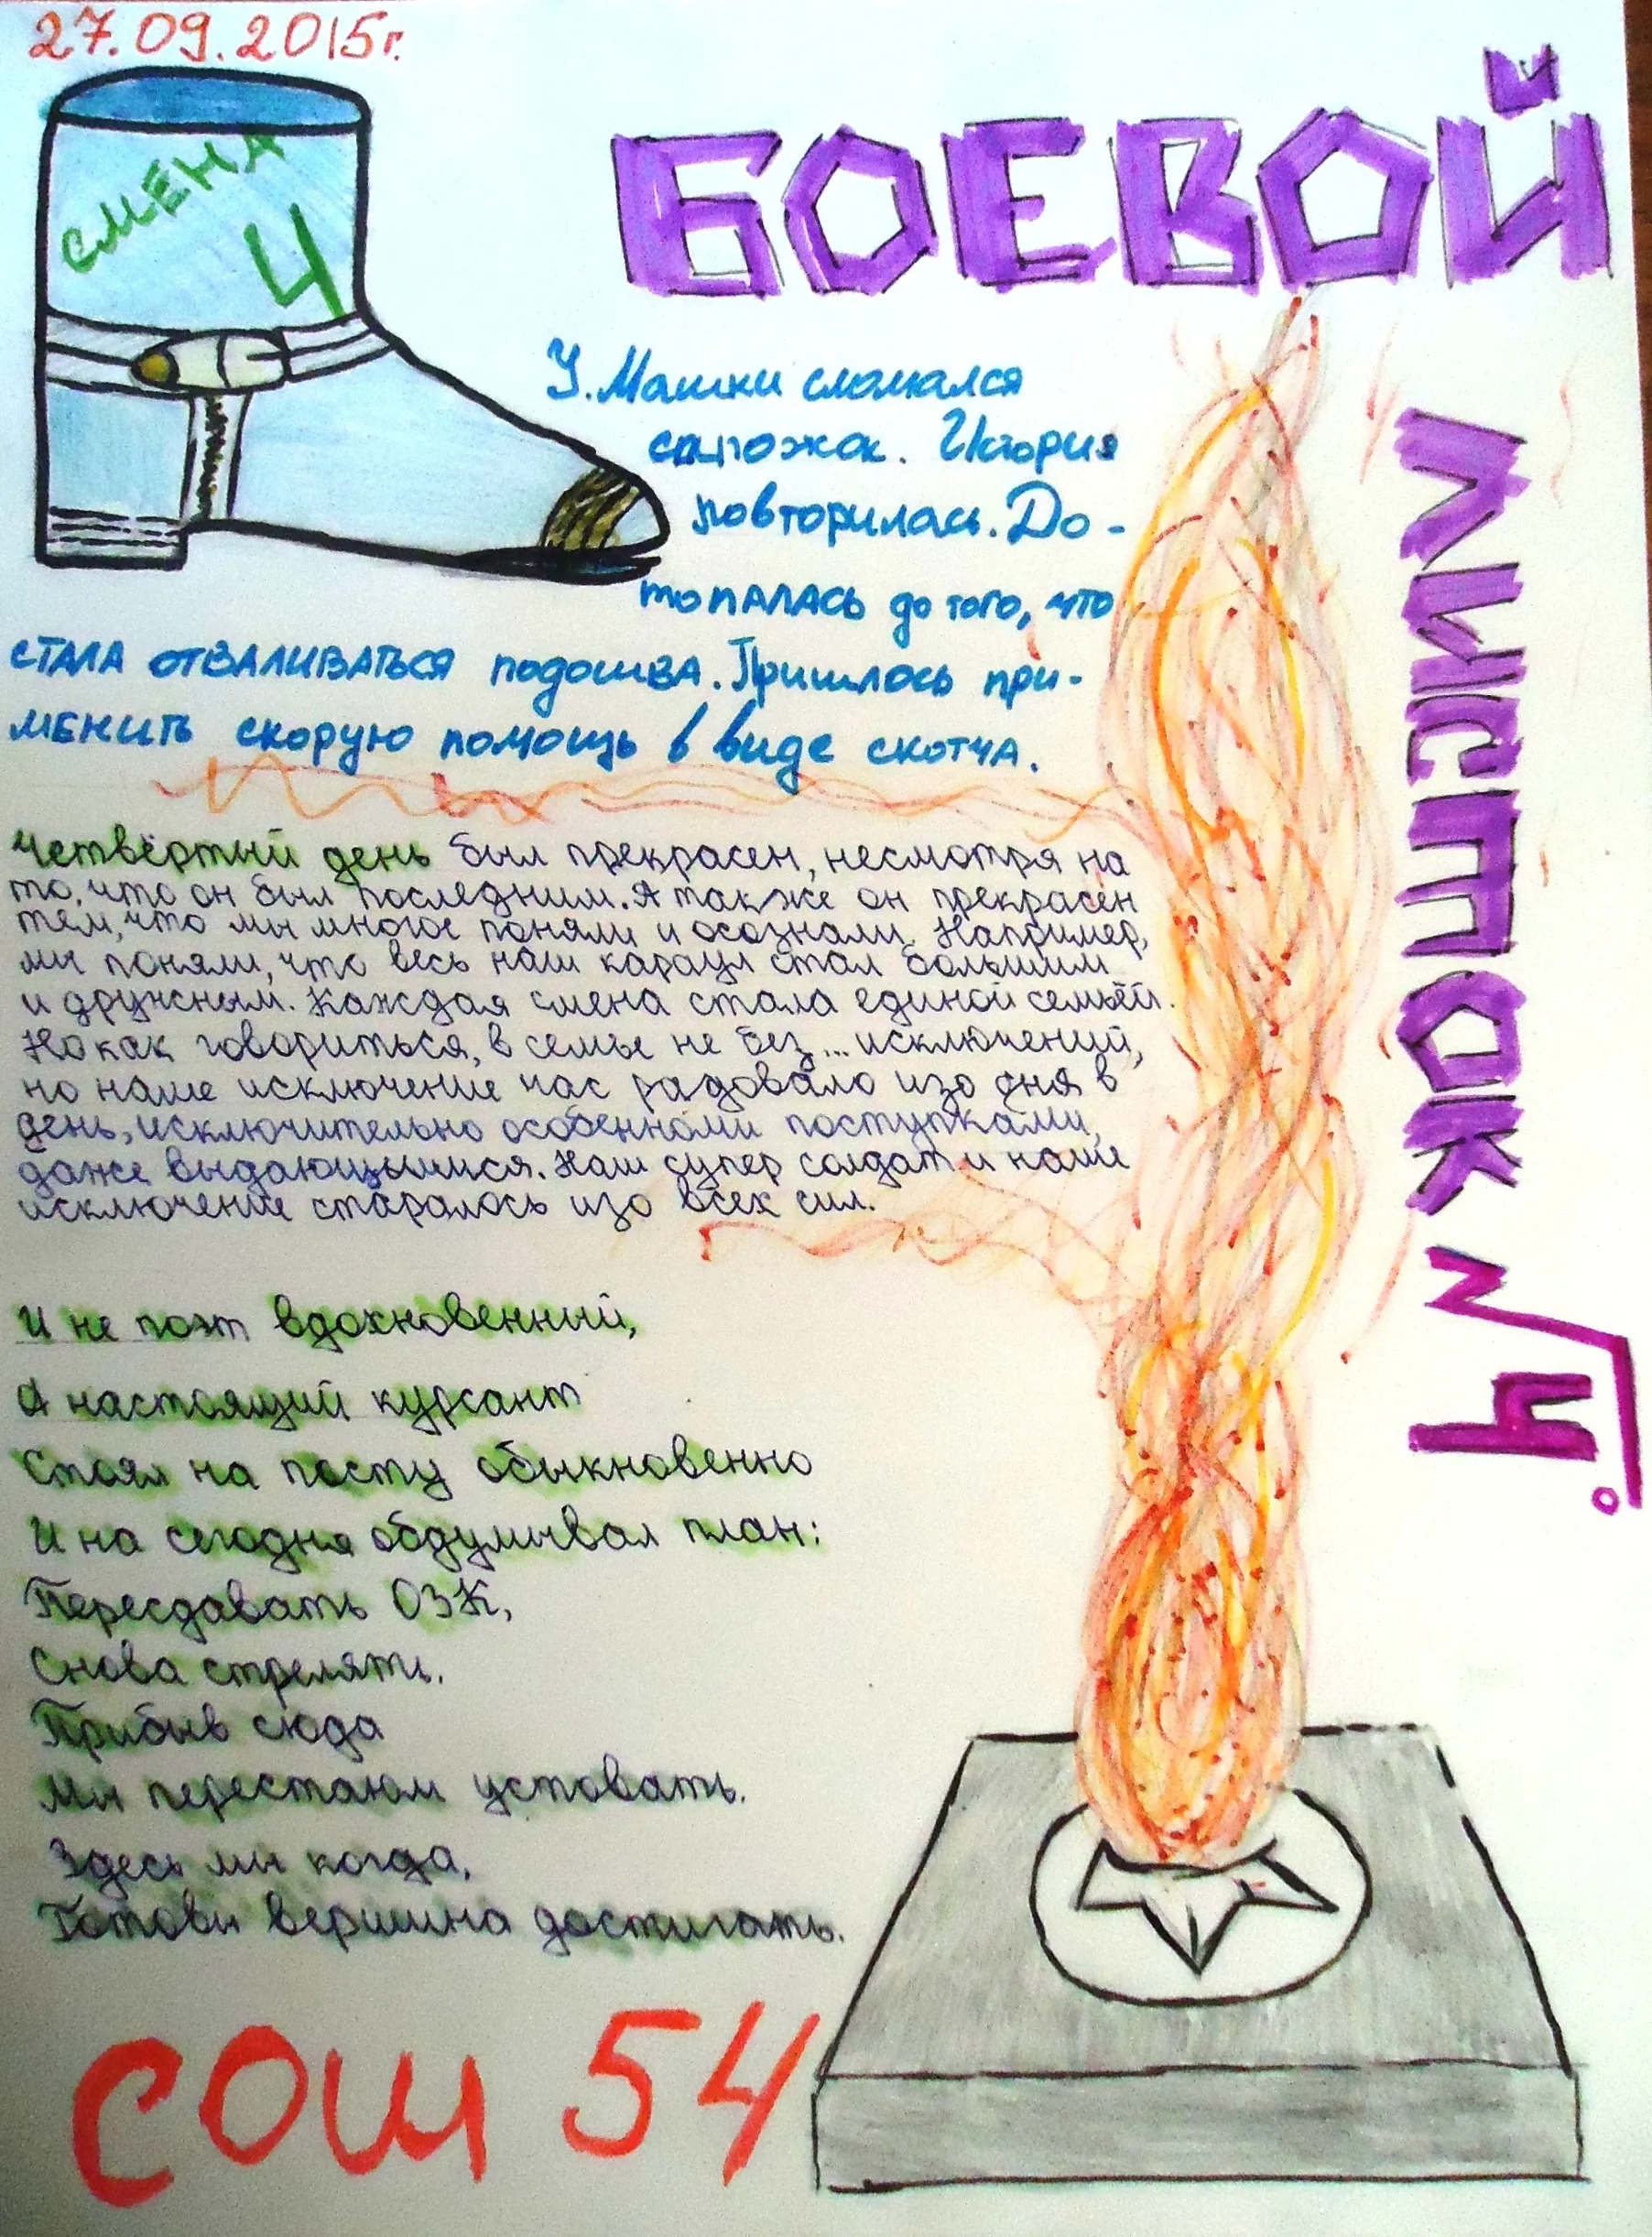 27.09.2015г.
СМЕНА
4
БОЕВОЙ
ЛИСТОК №4
У Машки сломался
сапожок. История
повторилась. До-
топалась до того, что
стала отваливаться подошва. Пришлось при-
менить скорую помощь в виде скотча.
Четвёртый день был прекрасен, несмотря на
то, что он был последним. А также он прекрасен
тем, что мы многое поняли и осознали. Например,
мы поняли, что весь наш караул стал большим
и дружным. Каждая смена стала единой семьёй.
Но как говориться, в семье не без... исключений,
но наше исключение нас радовало изо дня в
день, исключительно особенными поступками,
даже выдающимися. Наш супер солдат и наше
исключение старалось изо всех сил.
И не поэт вдохновенный,
А настоящий курсант
Стоял на посту обыкновенно
И на сегодня обдумывал план:
Пересдавать ОЗК,
Снова стрелять.
Прибыв сюда
Мы перестаём уставать.
Здесь мы когда,
Готовы вершина достигать.
СОШ 54